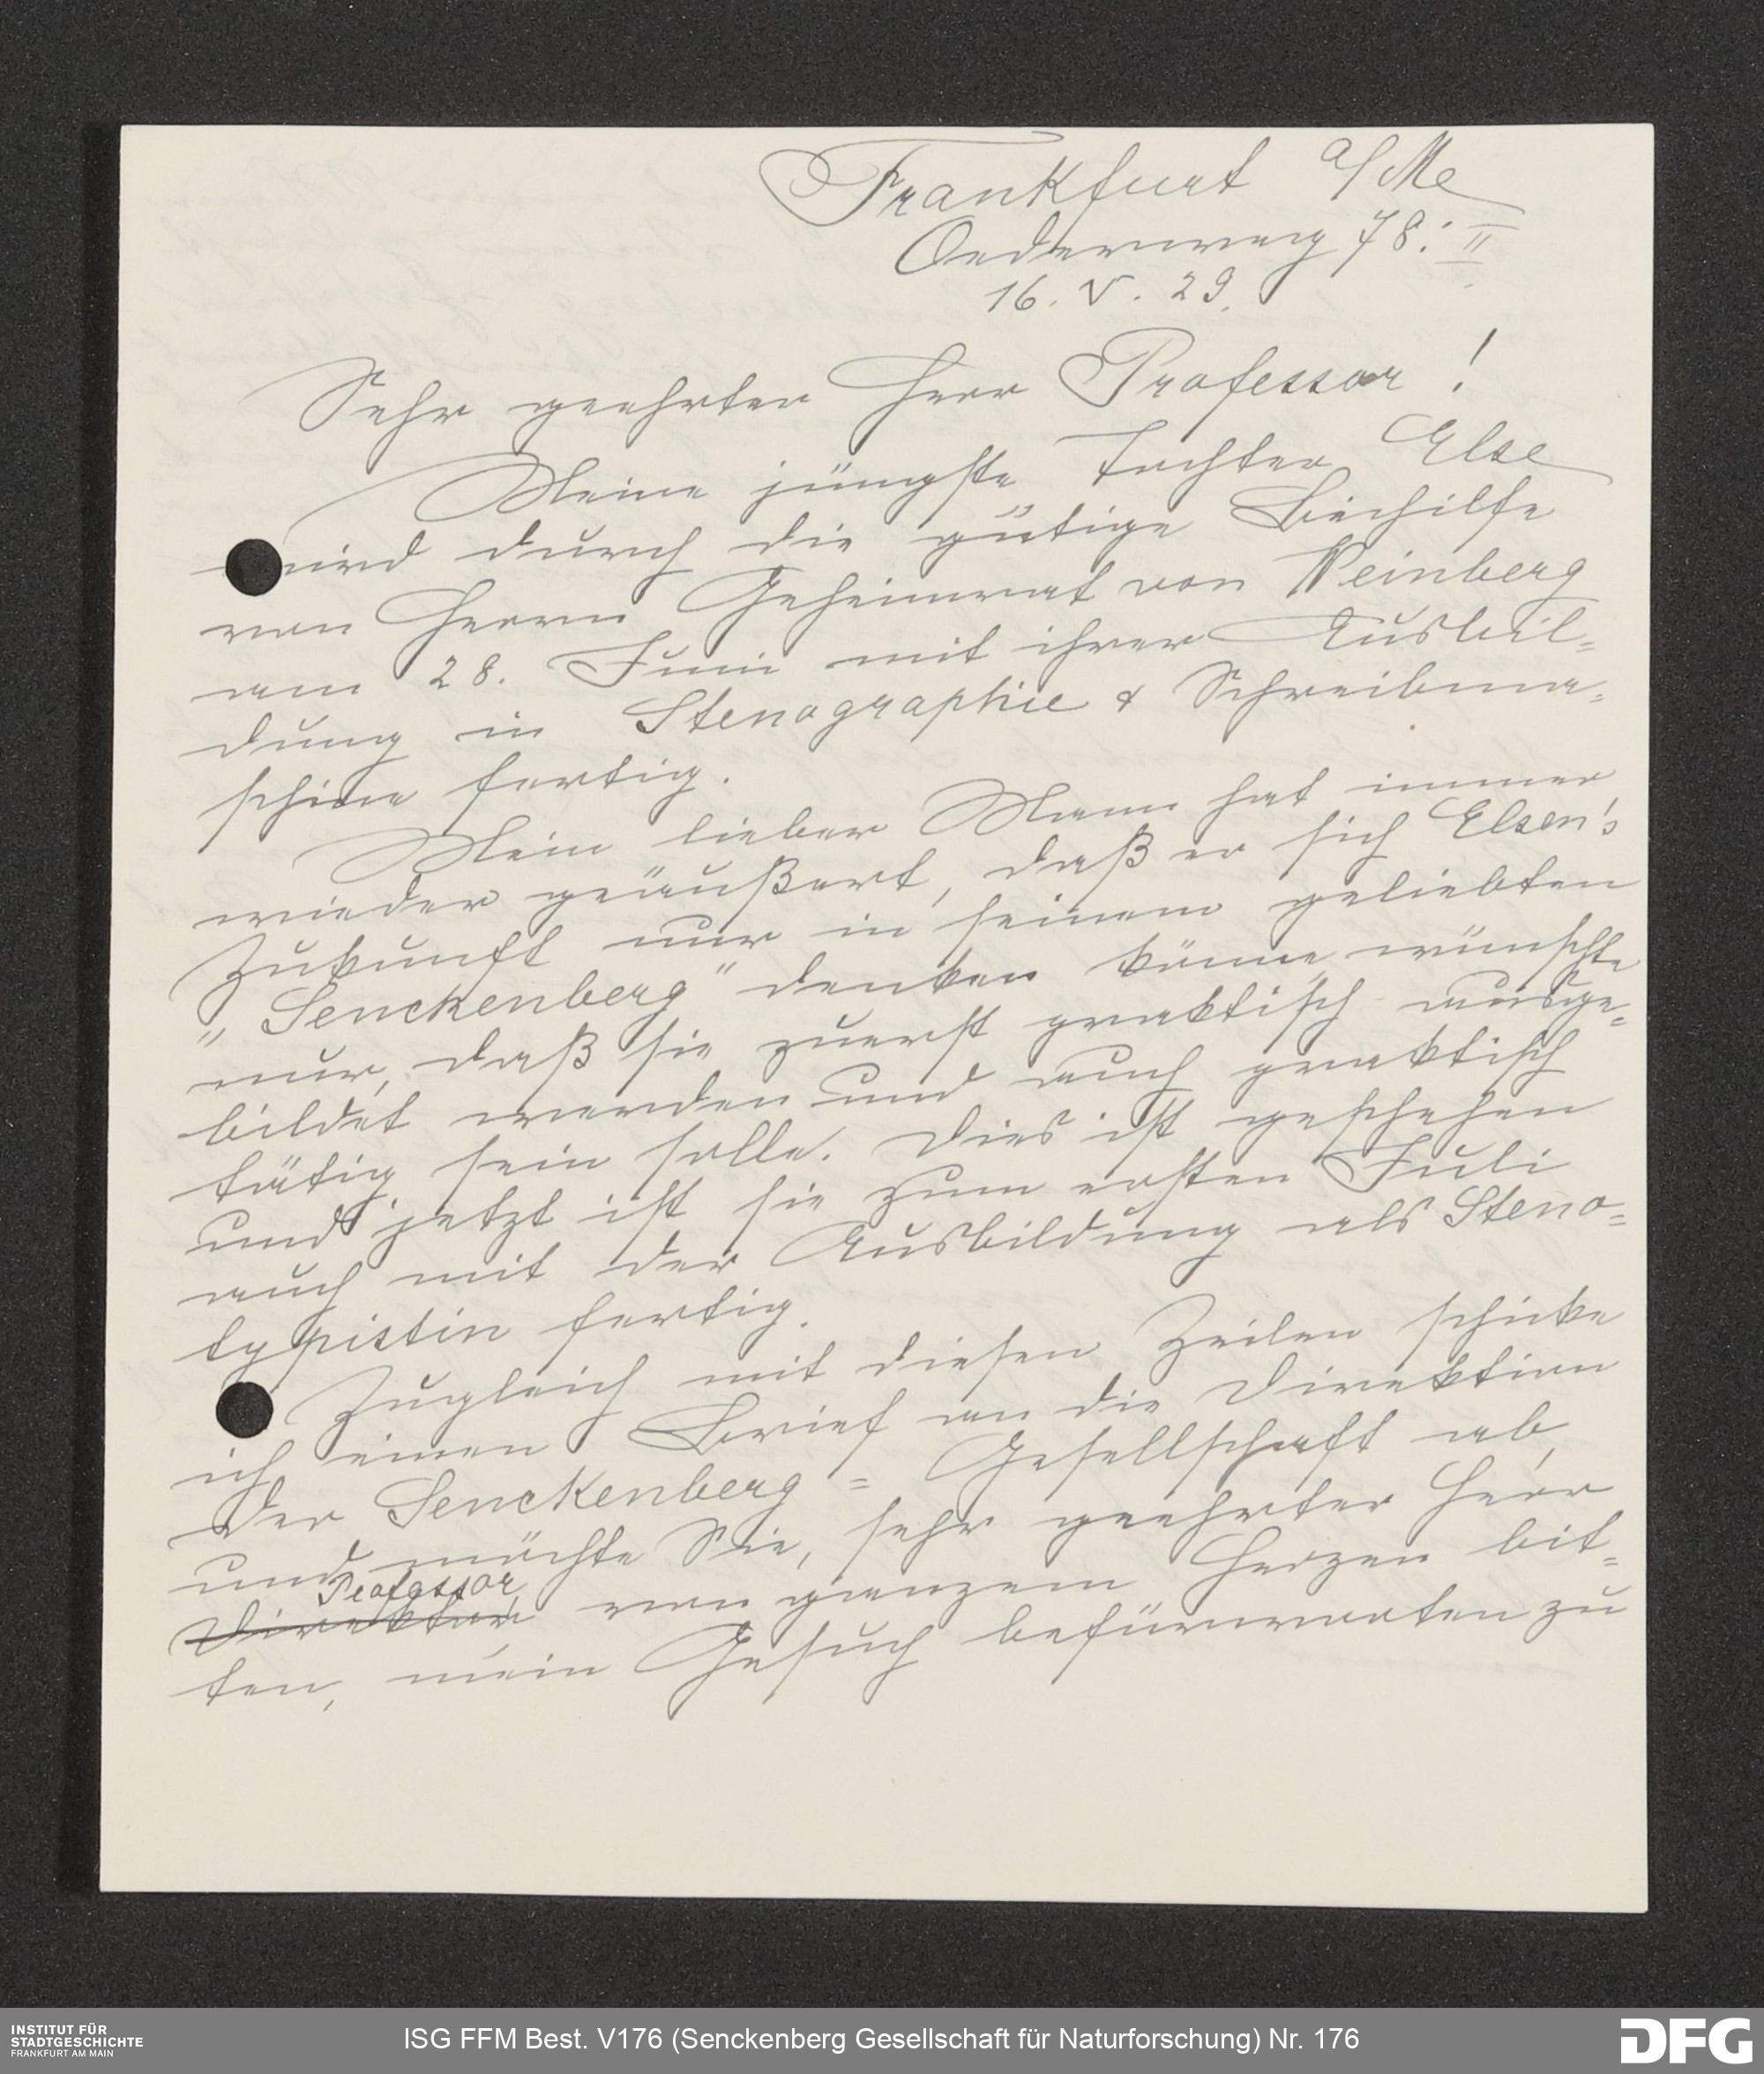 Frankfurt a/Me
Oederweg 78. II
16. V. 29.
Sehr geehrter Herr Professor!
Meine jüngste Tochter Else
wird durch die gütige Beihilfe
von Herrn Geheimrat von Weinberg
am 28. Juni mit ihrer Ausbil=
dung in Stenographie & Schreibma=
schine fertig.
Mein lieber Mann hat immer
wieder geäußert, daß er sich Elsen's
Zukunft nur in seinem geliebten
„Senckenberg" denken könne, wünschte
nur, daß sie zuerst praktisch ausge=
bildet werden und auch praktisch
tätig sein solle. Dies ist geschehen
und jetzt ist sie zum ersten Juli
auch mit der Ausbildung als Steno=
typistin fertig.
Zugleich mit diesen Zeilen schicke
ich einen Brief an die Direktion
der Senckenberg=Gesellschaft ab,
und möchte Sie, sehr geehrter Herr
Professor
Direktor von ganzem Herzen bit=
ten, mein Gesuch befürworten zu
INSTITUT FÜR
STADTGESCHICHTE
FRANKFURT AM MAIN
ISG FFM Best. V176 (Senckenberg Gesellschaft für Naturforschung) Nr. 176
DFG